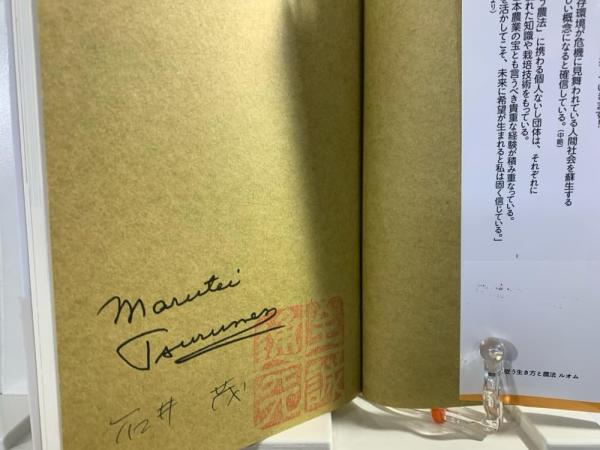 存環境が危機に見舞われている人間社会を蘇生する
しい概念になると確信している。（中略）
う農法」に携わる個人ないし団体は、それぞれに
れた知識や栽培技術をもっている。
本農業の宝とも言うべき貴重な経験が積み重なっている。
活かしてこそ、未来に希望が生まれると私は固く信じている。」
より）
従う生き方と農法 ルオム
Marutei
Tsurunen
石井 茂